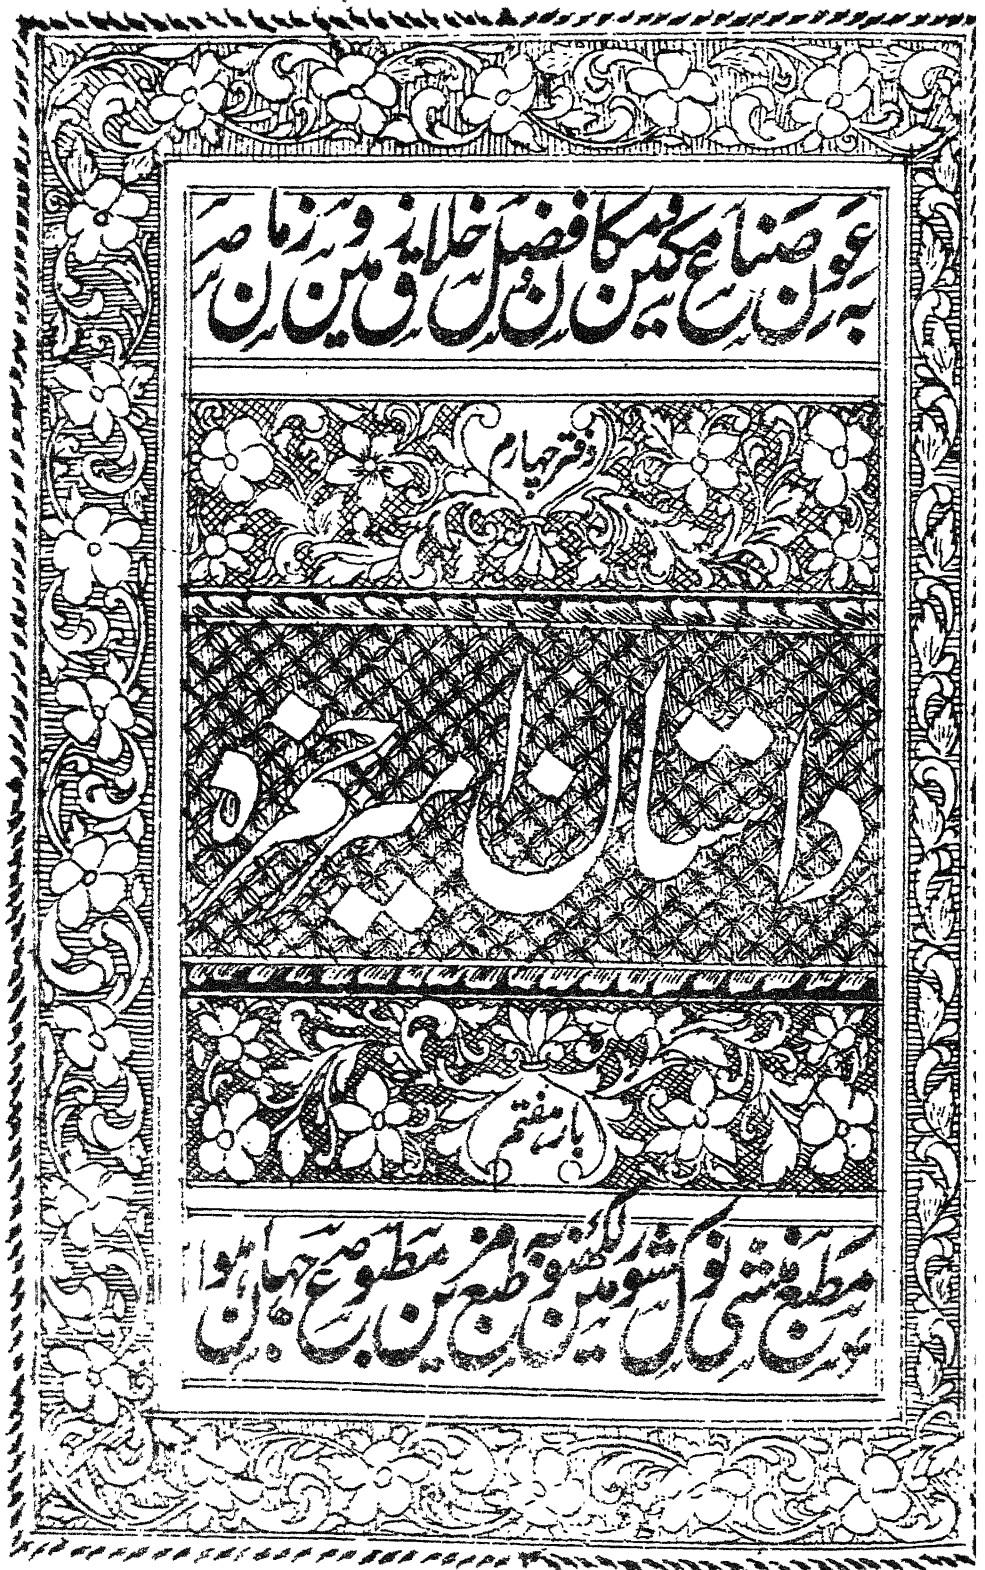 بہ عون صناع مکین و مکان فضل خلاق زمین و زمان
دفتر چہارم
داستان امیر حمزہ
بار ہفتم
مطبع منشی نولکشور لکھنؤ میں بہ طبع مزین مطبوع جہاں ہوا